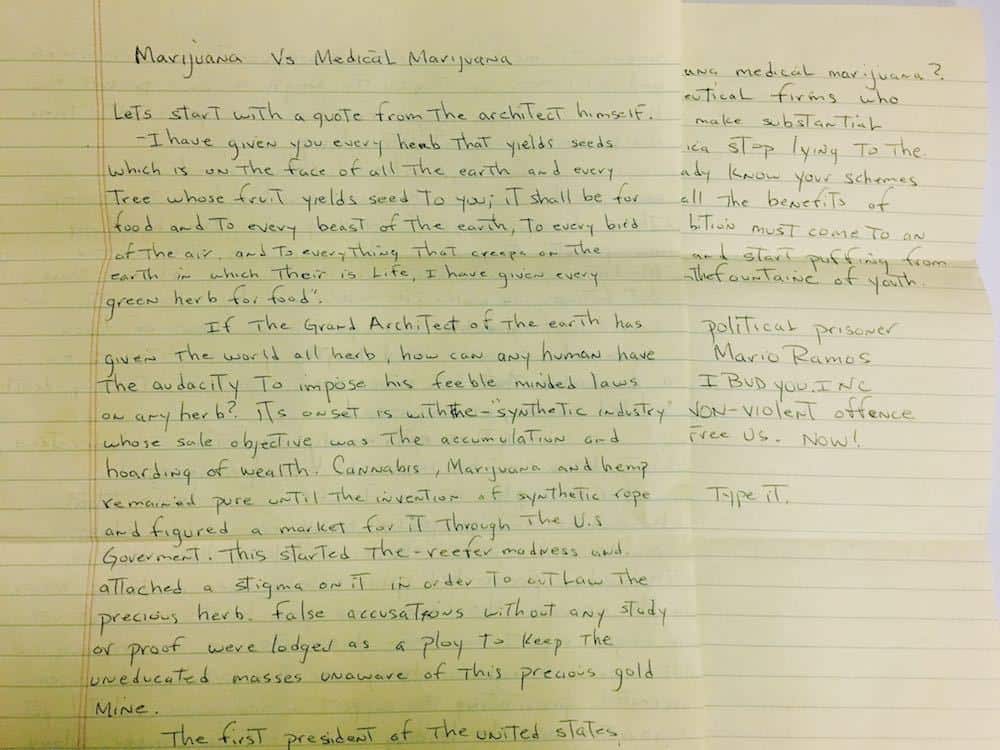 Marijuana Vs Medical Marijuana
Lets start with a quote from the architect himself.
-I have given you every herb that yields seeds
which is on the face of all the earth and every
Tree whose fruit yields seed to you; it shall be for
food and to every beast of the earth, to every bird
of the air, and to everything that creeps on the
earth in which their is life, I have given every
green herb for food".
If the Grand Architect of the earth has
given the world all herb, how can any human have
the audacity to impose his feeble minded laws
on any herb? its onset is with the - "synthetic industry"
whose sale objective was the accumulation and
hoarding of wealth. Cannabis, Marijuana and hemp
remained pure until the invention of synthetic rope
and figured a market for it through the U.S
Goverment. This started the - reefer madness and
attached a stigma on it in order to outlaw the
precious herb. false accusations without any study
or proof were lodged as a ploy to keep the
uneducated masses unaware of this precious gold
mine.
The first president of the united states
uana medical marijuana?
eutical firms who
make substantial
ica stop lying to the
ady know your schemes
all the benefits of
bition must come to an
and start puffing from
the fountaine of youth.
political prisoner
Mario Ramos
I BUD you. INC
NON-violent offence
Free us. Now!
Type it.